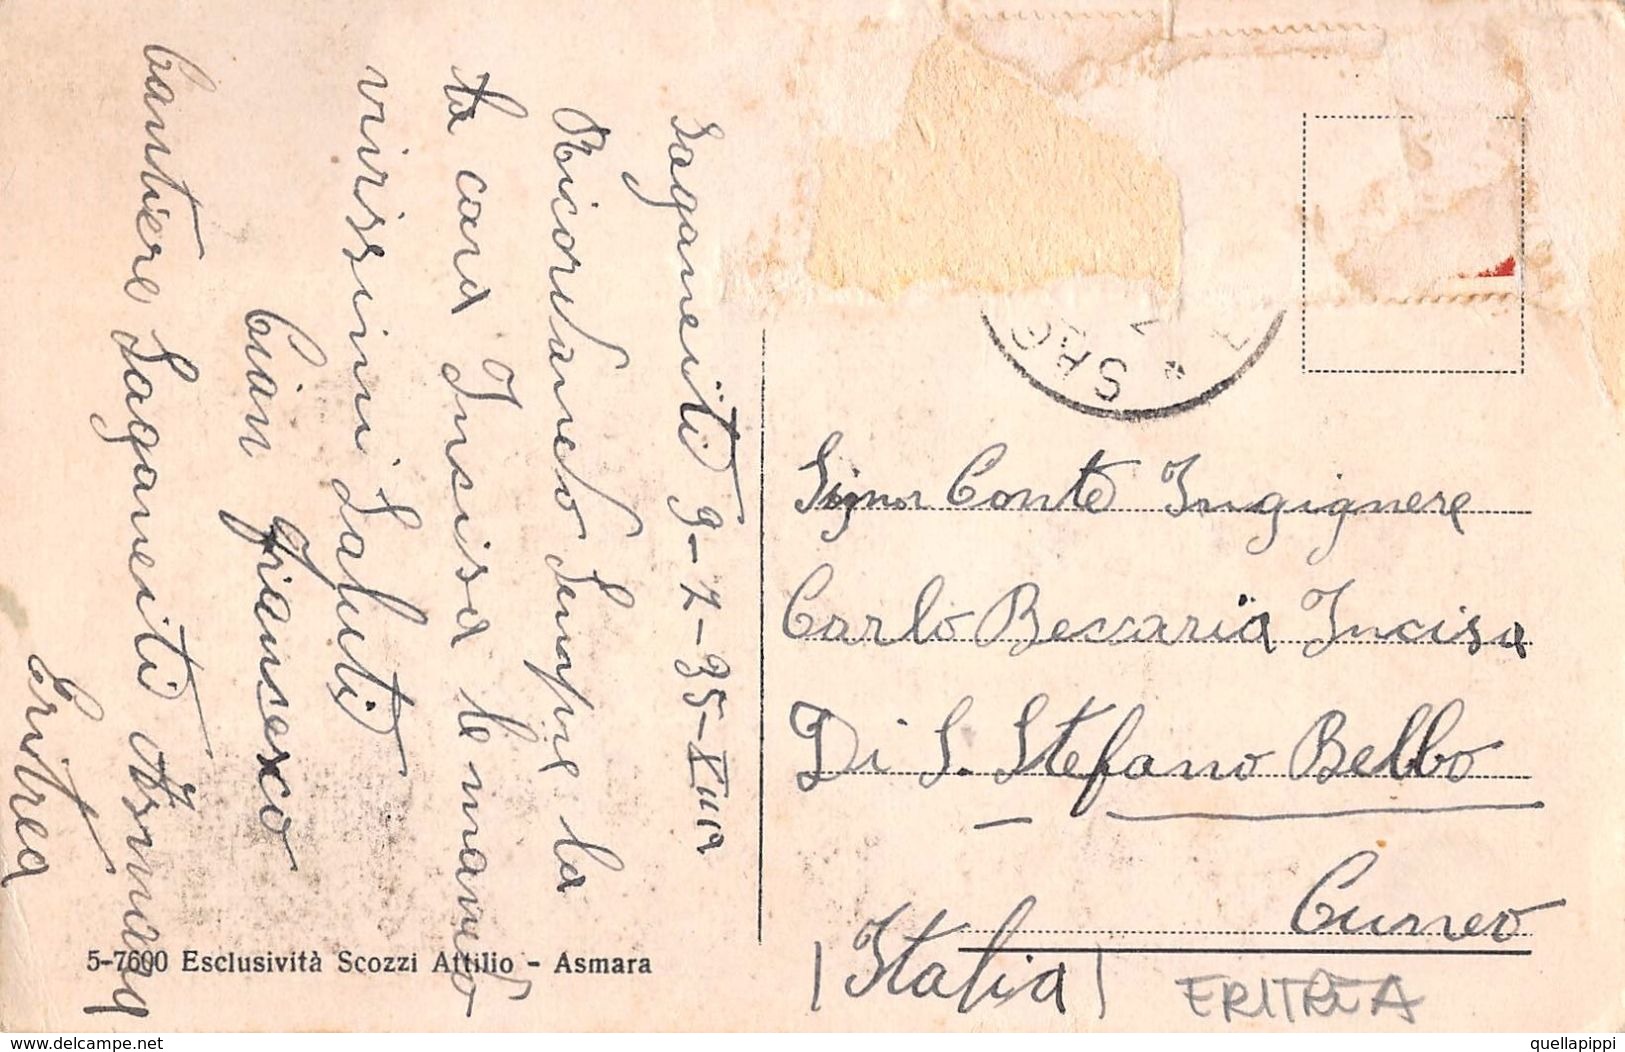 Saganeiti 9-7-35-XIII
Ricordando Sempre la
ta cara Incisa le mando
vivissimi Saluti
Cian francesco
Cantiere Saganeiti Asmara
Eritrea
5-7600 Esclusività Scozzi Attilio - Asmara
SAG
Signor Conte Ingignere
Carlo Beccaria Incisa
Di S. Stefano Belbo
Cuneo
(Italia)
ERITREA
www.delcampe.net
quellapippi